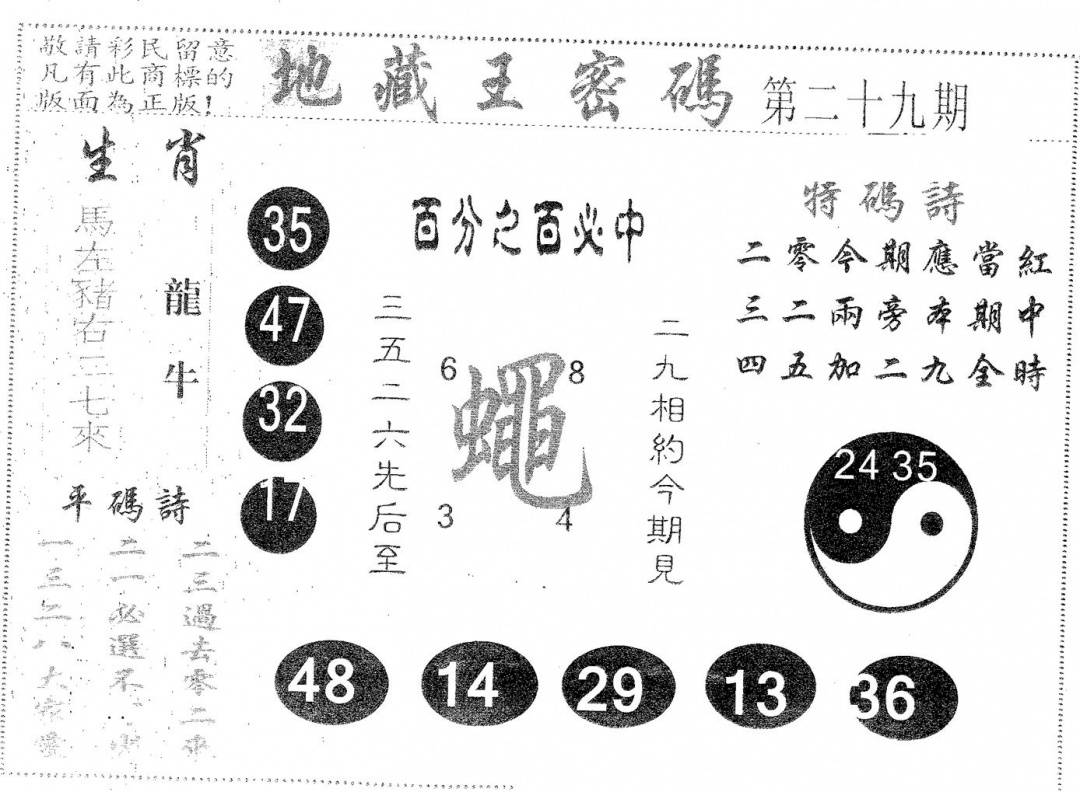 敬請彩民留意
凡有此商標的
版面為正版!
地藏王密碼
第二十九期
生肖
馬左豬右三七來
龍牛
平碼詩
二三過去零二來
二一必選不
一三二八大家愛
35
47
32
17
百分之百必中
三五二六先后至
6
8
蠅
3
4
二九相約今期見
特碼詩
二零今期應當紅
三二兩旁本期中
四五加二九全時
24 35
48
14
29
13
36